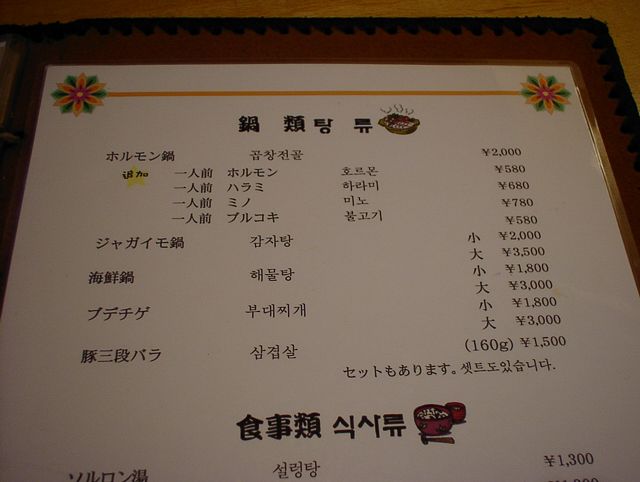 鍋 類 탕 류
ホルモン鍋 곱창전골 ¥2,000
追加 一人前 ホルモン 호르몬 ¥580
一人前 ハラミ 하라미 ¥680
一人前 ミノ 미노 ¥780
一人前 ブルコキ 불고기 ¥580
ジャガイモ鍋 감자탕 小 ¥2,000
大 ¥3,500
海鮮鍋 해물탕 小 ¥1,800
大 ¥3,000
ブデチゲ 부대찌개 小 ¥1,800
大 ¥3,000
豚三段バラ 삼겹살 (160g) ¥1,500
セットもあります。셋트도있습니다.
食事類 식사류
ソルロン湯 설렁탕 ¥1,300